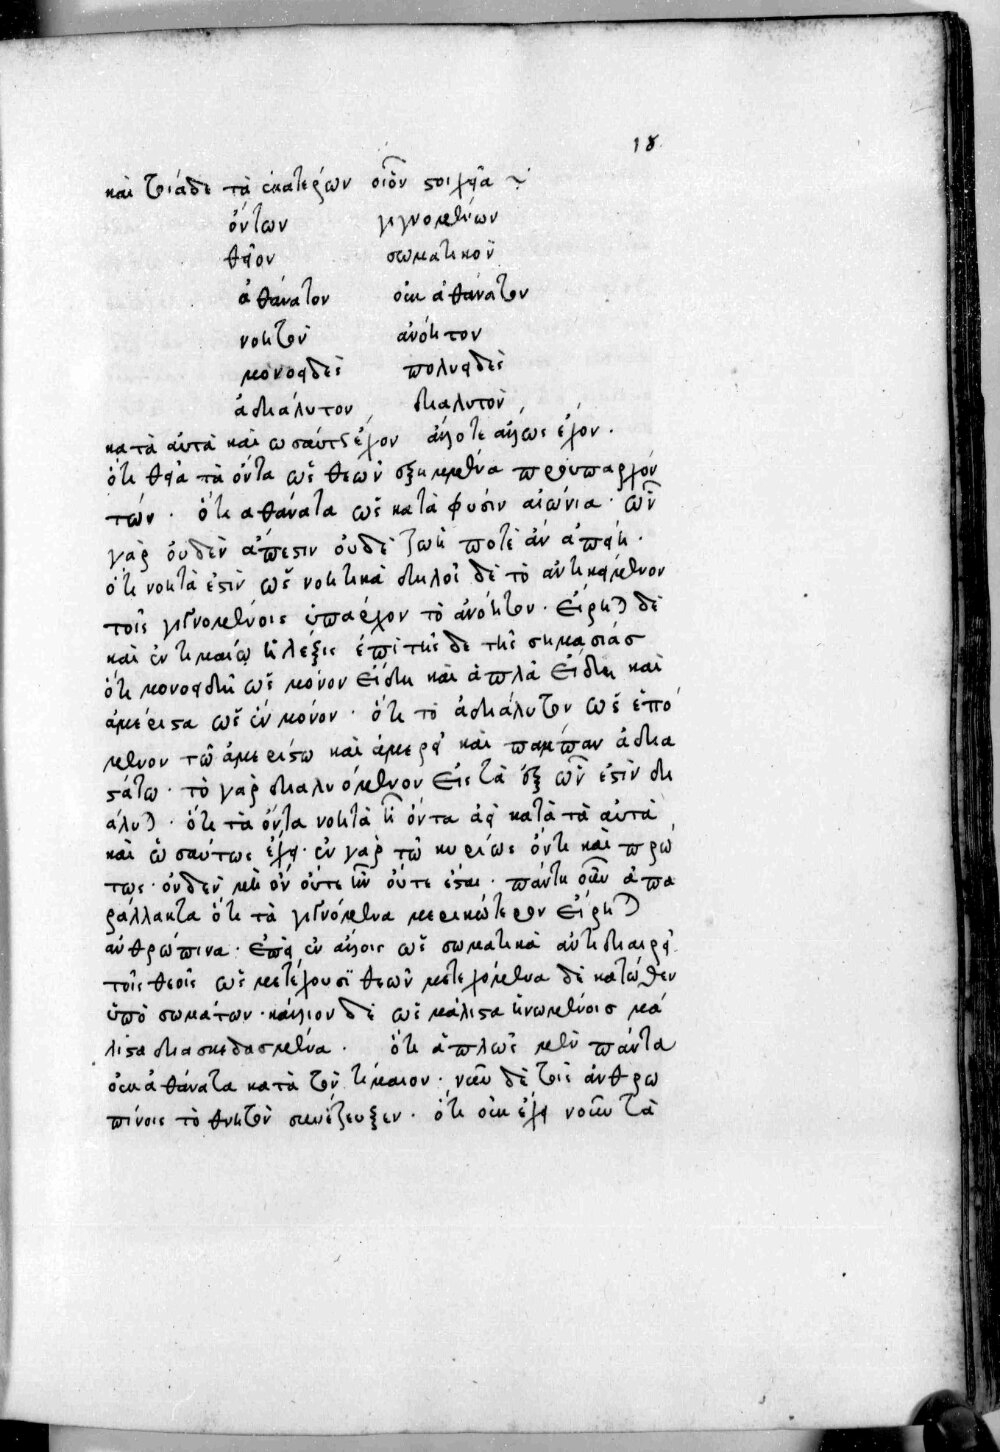 18
καὶ τριάδε τὰ ἑκατέρων οἷον στοιχεῖα
ὄντων γιγνομένων
θεῖον σωματικόν
ἀθάνατον οὐκ ἀθάνατον
νοητὸν ἀνόητον
μονοειδὲς πολυειδὲς
ἀδιάλυτον διαλυτὸν
κατὰ αὐτὰ καὶ ὡσαύτως ἔχον ἄλλοτε ἄλλως ἔχον.
ὅτι θεῖα τὰ ὄντα ὡς θεῶν ἐξημμένα προϋπαρχόν
των. ὅτι ἀθάνατα ὡς κατὰ φύσιν αἰώνια. ὧν
γὰρ οὐδὲν ἄπεστιν οὐδὲ ζωή ποτὲ ἂν ἀπείη.
ὅτι νοητά ἐστιν ὡς νοητικὰ δηλοῖ δὲ τὸ ἀντικείμενον
τοῖς γιγνομένοις ὑπάρχον τὸ ἀνόητον. εἴρηται δὲ
καὶ ἐν τιμαίῳ ἡ λέξις ἐπὶ τῆσδε τῆς σημασίας
ὅτι μονοειδῆ ὡς μόνον εἴδη καὶ ἁπλᾶ εἴδη καὶ
ἀμέριστα ὡς ἓν μόνον. ὅτι τὸ ἀδιάλυτον ὡς ἑπό
μενον τῷ ἀμερίστῳ καὶ ἀμερεῖ καὶ πάμπαν ἀδια
στάτῳ. τὸ γὰρ διαλυόμενον εἰς τὰ ἐξ ὧν ἐστὶν δι
αλύεται. ὅτι τὰ ὄντα νοητὰ ἢ ὄντα ἀεὶ κατὰ τὰ αὐτὰ
καὶ ὡσαύτως ἔχει. ἐν γὰρ τῷ κυρίως ὄντι καὶ πρώ
τως. οὐδὲν μὴ ὂν οὔτε ἦν οὔτε ἔσται. πάντη οὖν ἀπα
ράλλακτα ὅτι τὰ γιγνόμενα μερικώτερον εἴρηται
ἀνθρώπινα. ἐπεὶ ἐν ἄλλοις ὡς σωματικὰ ἀντιδιαιρεῖ
τοῖς θεοῖς ὡς μετέχουσι θεῶν μετεχόμενα δὲ κάτωθεν
ὑπὸ σωμάτων. κάλλιον δὲ ὡς μάλιστα ἡνωμένοις μά
λιστα διασκεδασμένα. ὅτι ἁπλῶς μὲν πάντα
οὐκ ἀθάνατα κατὰ τὸν τίμαιον. νῦν δὲ τοῖς ἀνθρω
πίνοις τὸ θνητὸν συνέζευξεν. ὅτι οὐκ ἔχει νοῦν τὰ